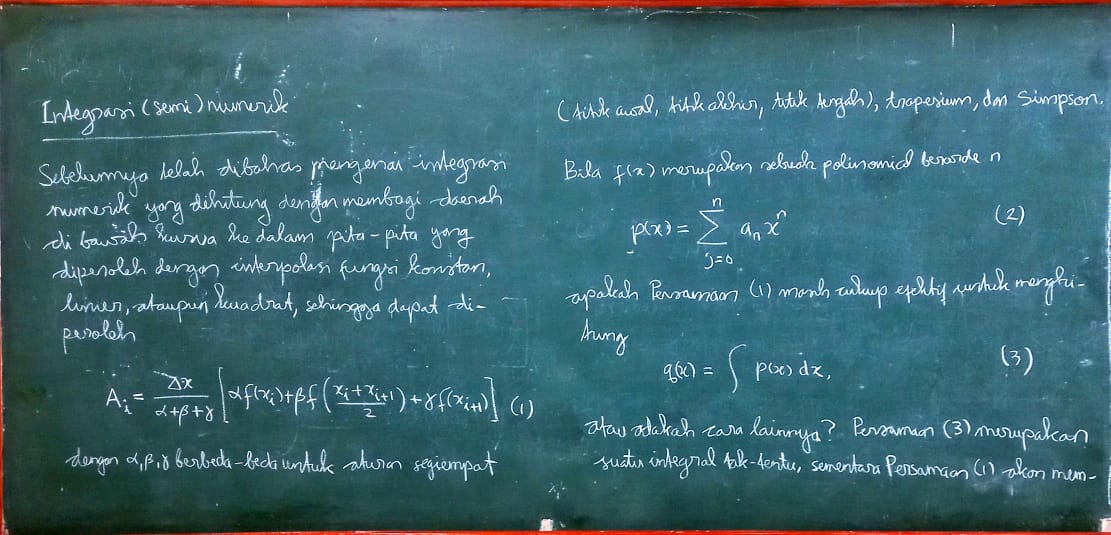 Integrasi (semi) numerik
Sebelumnya telah dibahas mengenai integrasi
numerik yang dihitung dengan membagi daerah
di bawah kurva ke dalam pita-pita yang
diperoleh dengan interpolasi fungsi konstan,
linier, ataupun kuadrat, sehingga dapat di-
peroleh
A_i = Δx / (α+β+γ) [αf(x_i)+βf((x_i+x_{i+1})/2)+γf(x_{i+1})] (1)
dengan α,β,γ berbeda-beda untuk aturan segiempat
(titik awal, titik akhir, titik tengah), trapesium, dan Simpson.
Bila f(x) merupakan sebuah polinomial berorde n
p(x) = ∑_{j=0}^{n} a_n x^n (2)
apakah Persamaan (1) masih cukup efektif untuk menghi-
tung
q(x) = ∫ p(x) dx, (3)
atau adakah cara lainnya? Persamaan (3) merupakan
suatu integral tak-tentu, sementara Persamaan (1) akan mem-